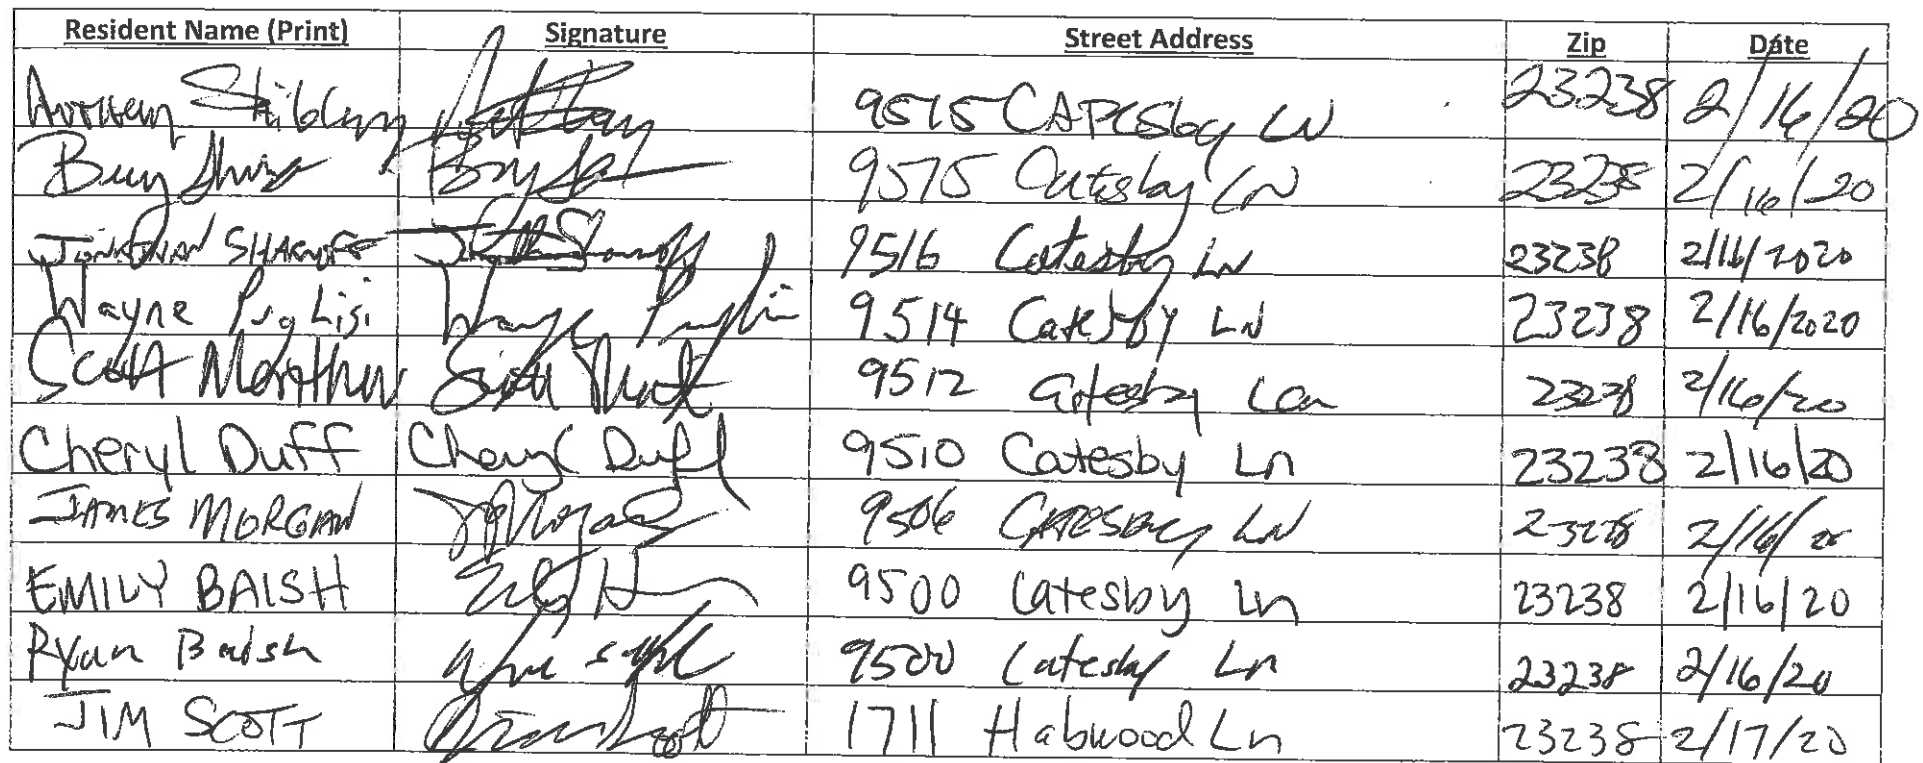 Resident Name (Print) Signature Street Address Zip Date
9515 CAPESby LN 23238 2/16/20
9515 Catesby LN 23238 2/16/20
JONATHAN SHARNOFF 9516 Catesby LN 23238 2/16/2020
Wayne Puglisi Wayne Puglisi 9514 Catesby LN 23238 2/16/2020
Scott Scott 9512 Catesby Lan 23238 2/16/20
Cheryl Duff Cheryl Duff 9510 Catesby Ln 23238 2/16/20
JAMES MORGAN 9506 CATESBY LN 23238 2/16/20
EMILY BAISH 9500 Catesby Ln 23238 2/16/20
Ryan Baish 9500 Catesby Ln 23238 2/16/20
JIM SCOTT 1711 Habwood Ln 23238 2/17/20